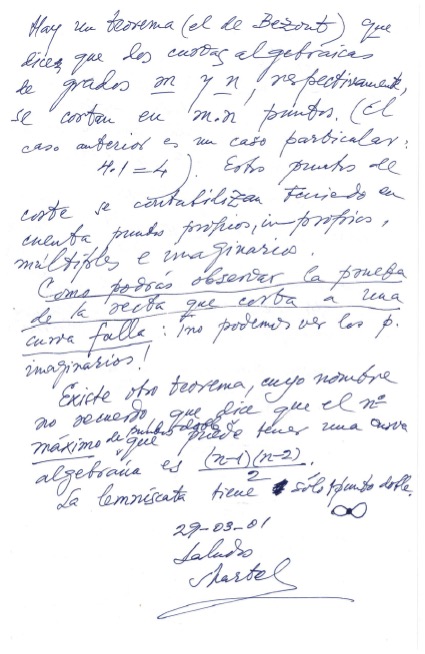 Hay un teorema (el de Bezout) que
dice que dos curvas algebraicas
de grados m y n, respectivamente,
se cortan en m.n puntos. (El
caso anterior es un caso particular:
4.1=4). Estos puntos de
corte se contabilizan teniendo en
cuenta puntos propios, impropios,
múltiples e imaginarios.
Como podrás observar la prueba
de la recta que corta a una
curva falla: ¡no podemos ver los p.
imaginarios!
Existe otro teorema, cuyo nombre
no recuerdo que dice que el nº
máximo de puntos dobles que puede tener una curva
algebraica es (n-1)(n-2)/2.
La lemniscata tiene sólo 1 punto doble.
29-03-01
Saludos
Martel